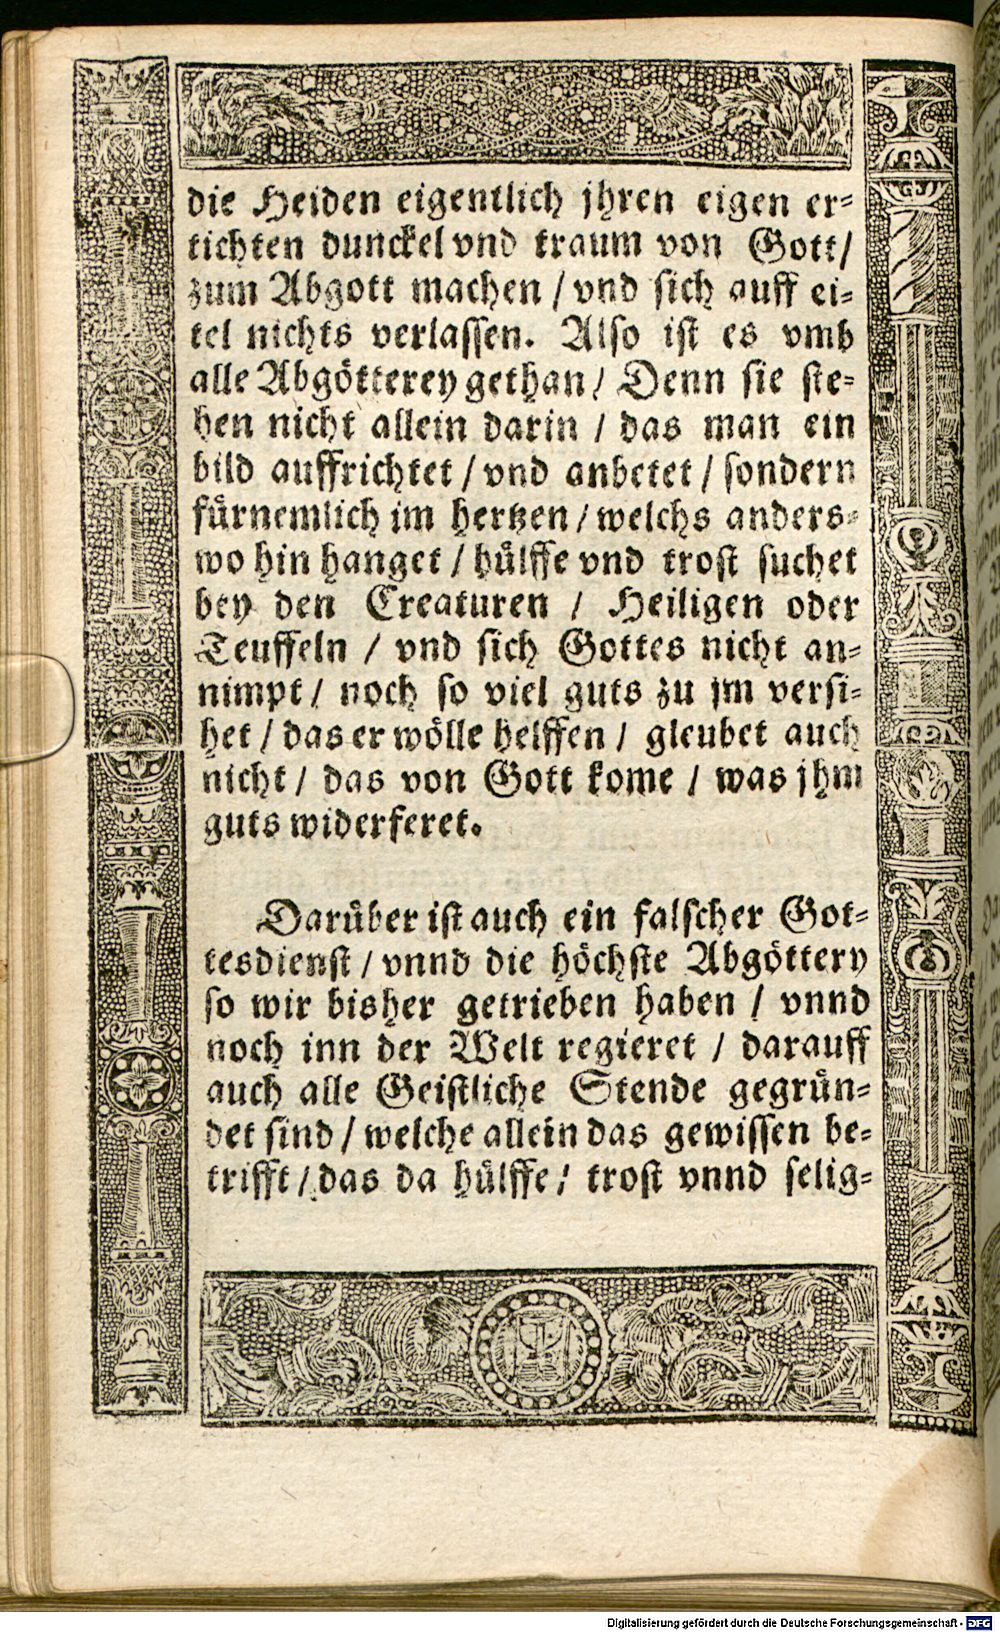 die Heiden eigentlich jhren eigen er-
tichten dunckel vnd traum von Gott/
zum Abgott machen / vnd sich auff ei-
tel nichts verlassen. Also ist es vmb
alle Abgötterey gethan / Denn sie ste-
hen nicht allein darin / das man ein
bild auffrichtet / vnd anbetet / sondern
fürnemlich im hertzen / welchs anders-
wo hin hanget / hülffe vnd trost suchet
bey den Creaturen / Heiligen oder
Teuffeln / vnd sich Gottes nicht an-
nimpt / noch so viel guts zu jm versi-
het / das er wölle helffen / gleubet auch
nicht / das von Gott kome / was jhm
guts widerferet.
Darüber ist auch ein falscher Got-
tesdienst / vnnd die höchste Abgöttery
so wir bisher getrieben haben / vnnd
noch inn der Welt regieret / darauff
auch alle Geistliche Stende gegrün-
det sind / welche allein das gewissen be-
trifft / das da hülffe / trost vnnd selig-
Digitalisierung gefördert durch die Deutsche Forschungsgemeinschaft - DFG